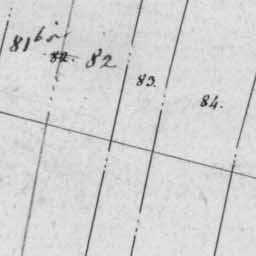 81 bis
82.
82
83.
84.